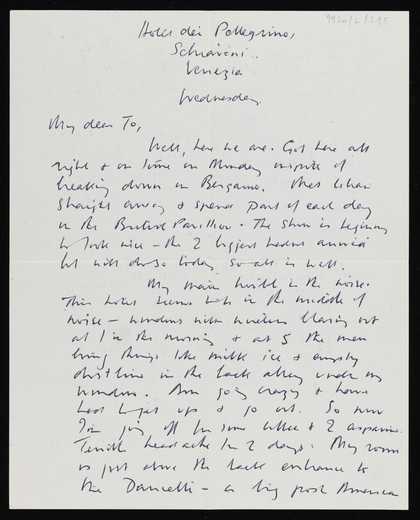 9920/2/295
Hotel dei Pellegrino,
Schiavoni..
Venezia
Wednesday.
My dear To,
Well, here we are. Got here all
right & on time on Monday inspite of
breaking down in Bergamo. Met Lilian
straight away & spend part of each day
in the British Pavilion. The show is beginning
to look nice – the 2 biggest haven't arrived
but will do so today so all is well.
My main trouble is the noise.
This hotel seems to be in the middle of
noise – windows with wireless blaring out
at 1 in the morning & at 5 the men
bring things like milk ice & empty
dustbins in the back alley under my
window. Am going crazy & have
had to get up & go out. So now
I'm going off for some coffee & 2 aspirins.
Terrible headache for 2 days. My room
is just above the back entrance to
the Danielli – a big posh American